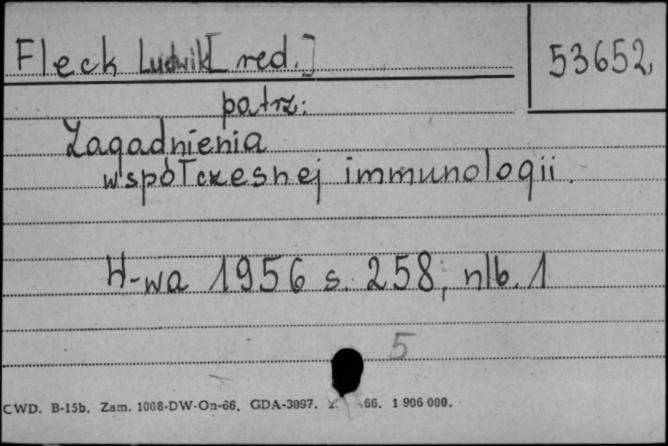 Fleck Ludwik [red.]
53652
patrz:
Zagadnienia
współczesnej immunologii.
W-wa 1956 s. 258, nlb. 1
5
CWD. B-15b. Zam. 1008-DW-On-66. GDA-3097. 66. 1 906 000.